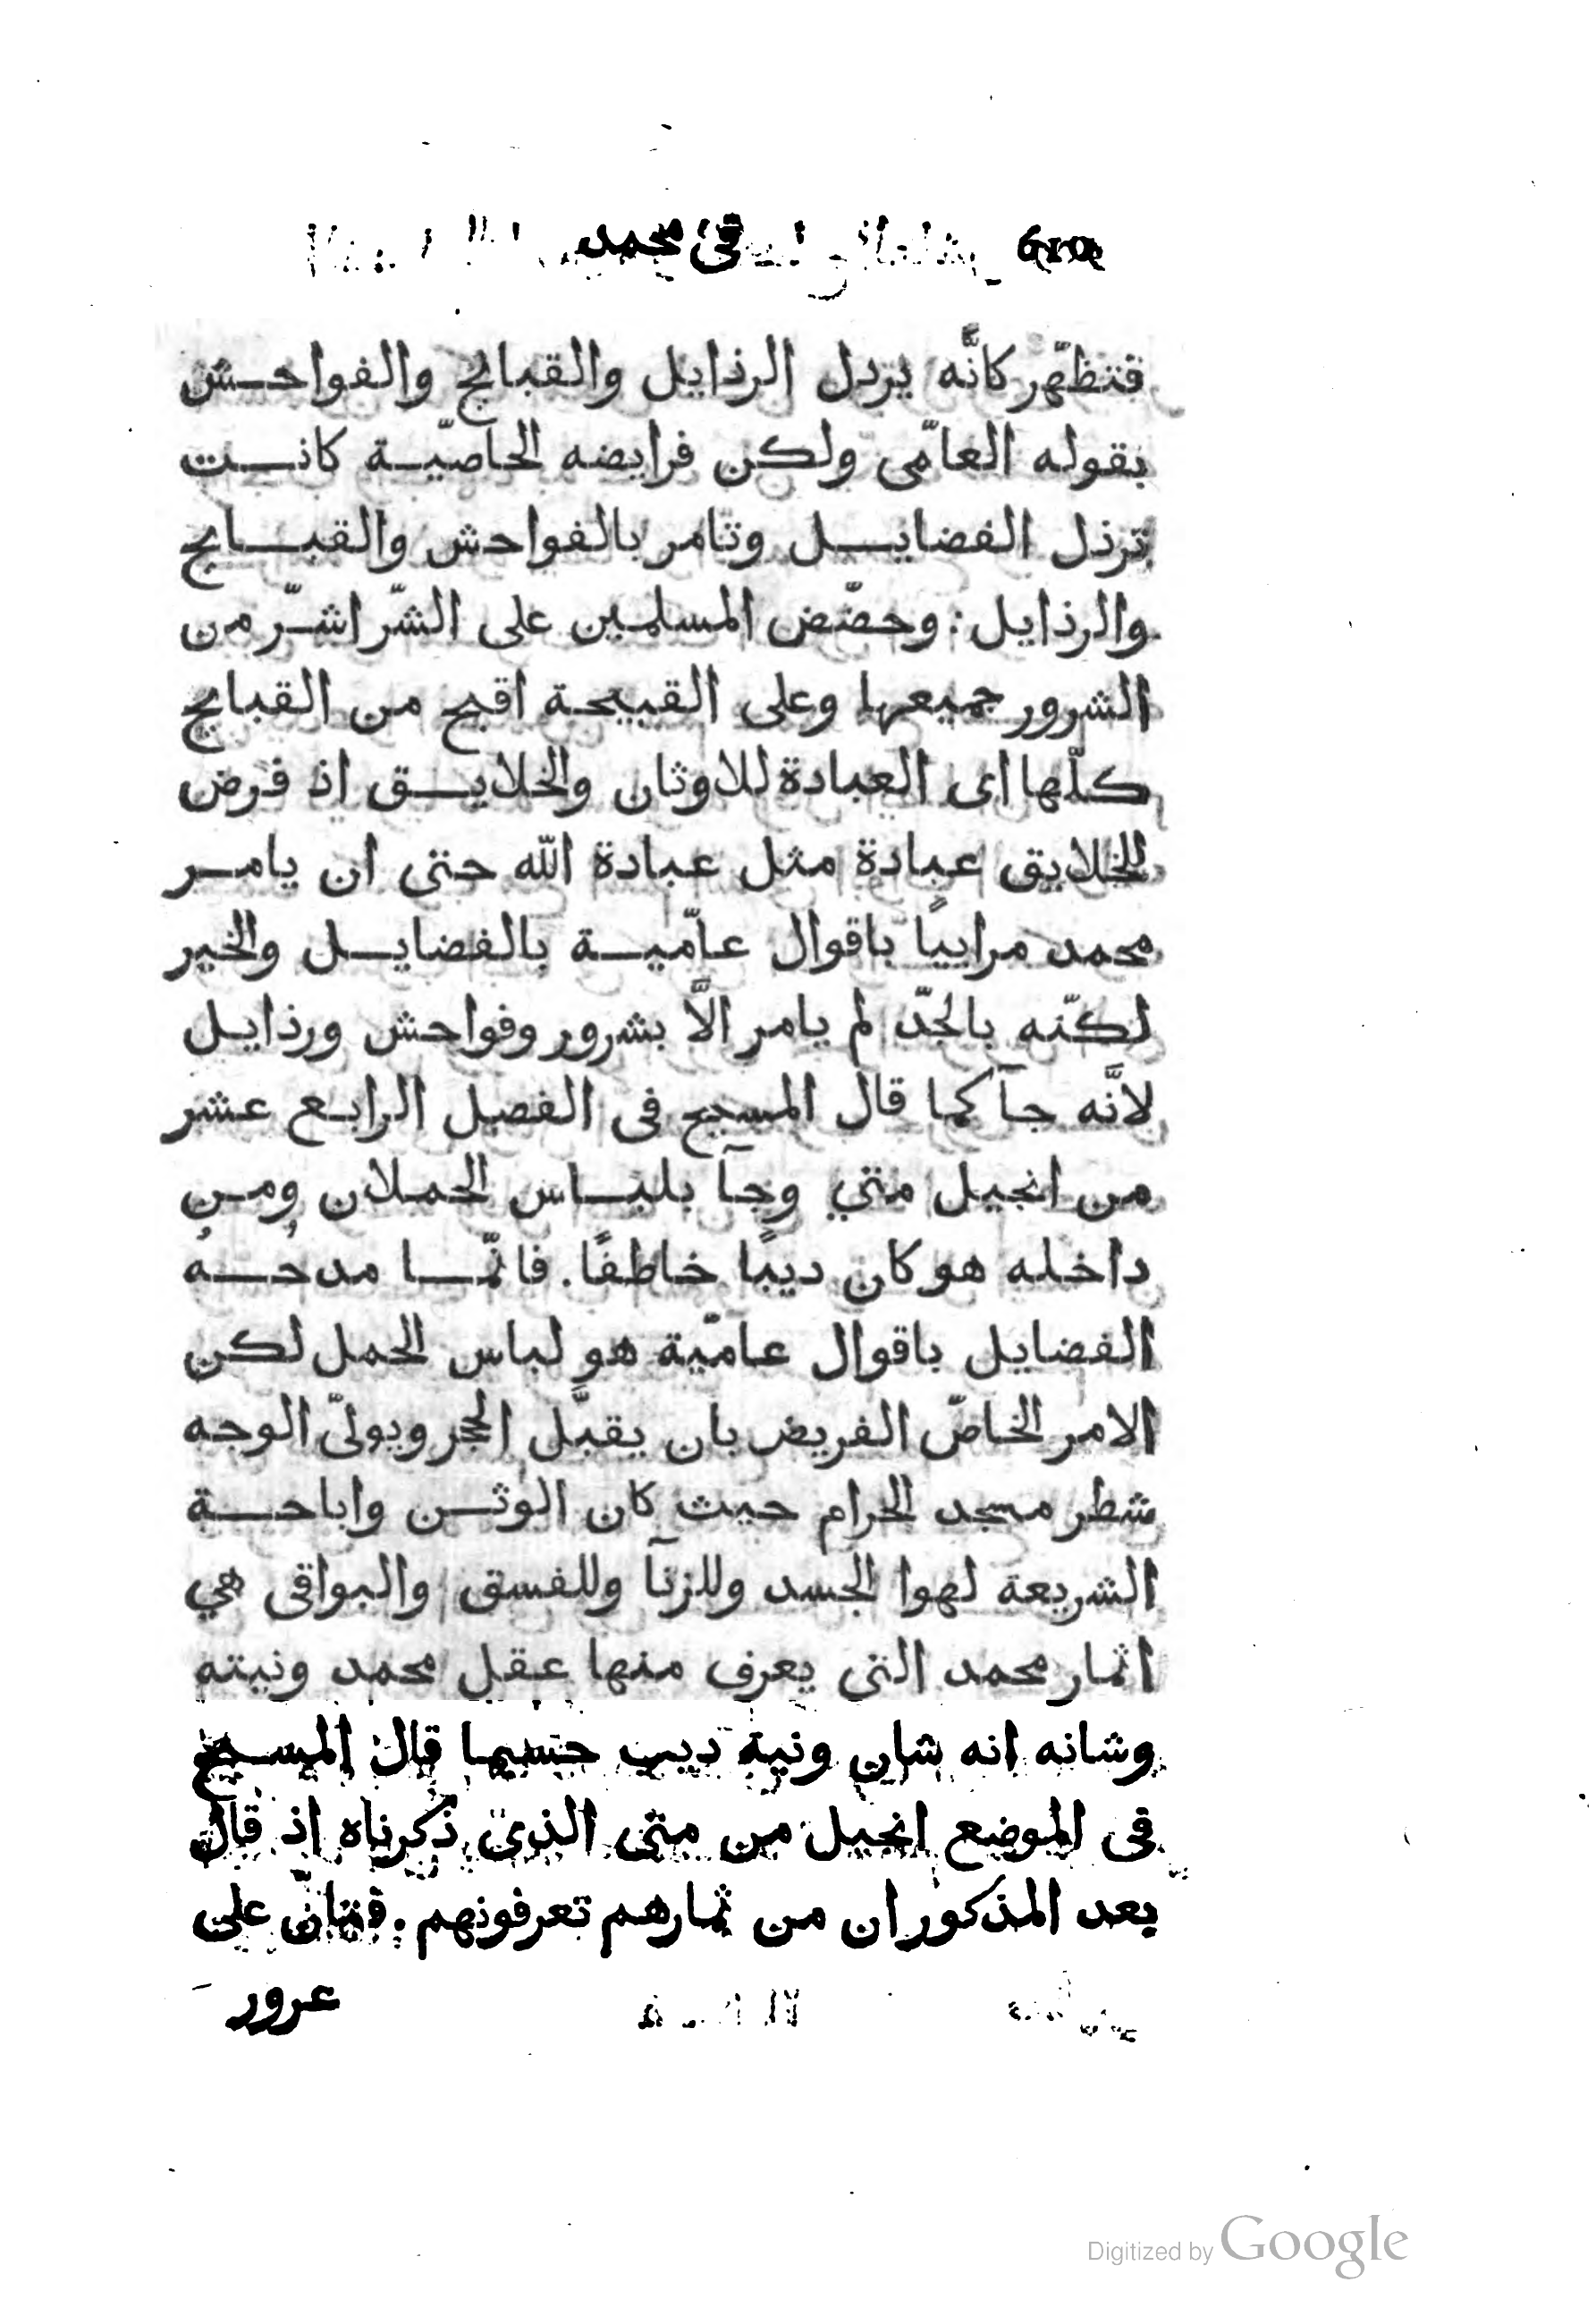 في محمد
فتظهّر كانّه يردل الرذايل والقبايح والفواحش
بقوله العامّى ولكن فرايضه الخاصّية كانت
ترذل الفضايل وتامر بالفواحش والقبايح
والرذايل: وحضّض المسلمين على الشّر اشرّ من
الشرور جميعها وعلى القبيحة اقبح من القبايح
كلّها اى العبادة للاوثان والخلايق اذ فرض
للخلايق عبادة مثل عبادة الله حتى ان يامر
محمد مراييًا باقوال عامّية بالفضايل والخير
لكنّه بالجدّ لم يامر الاّ بشرور وفواحش ورذايل
لانّه جآ كما قال المسيح فى الفصل الرابع عشر
من انجيل متي وجآ بلباس الحملان ومن
داخله هو كان ديبًا خاطفًا. فانّما مدحهُ
الفضايل باقوال عاميّة هو لباس الحمل لكن
الامر الخاصّ الفريض بان يقبّل الحجر ويولىّ الوجه
شطر مسجد الحرام حيث كان الوثن واباحة
الشريعة لهوا الجسد وللزنآ وللفسق والبواقى هي
اثمار محمد التى يعرف منها عقل محمد ونيته
وشانه انه شان ونية ديب حسبما قال المسيح
فى الموضع انجيل من متى الذى ذكرناه اذ قال
بعد المذكور ان من ثمارهم تعرفونهم. على
عرور
Digitized by Google